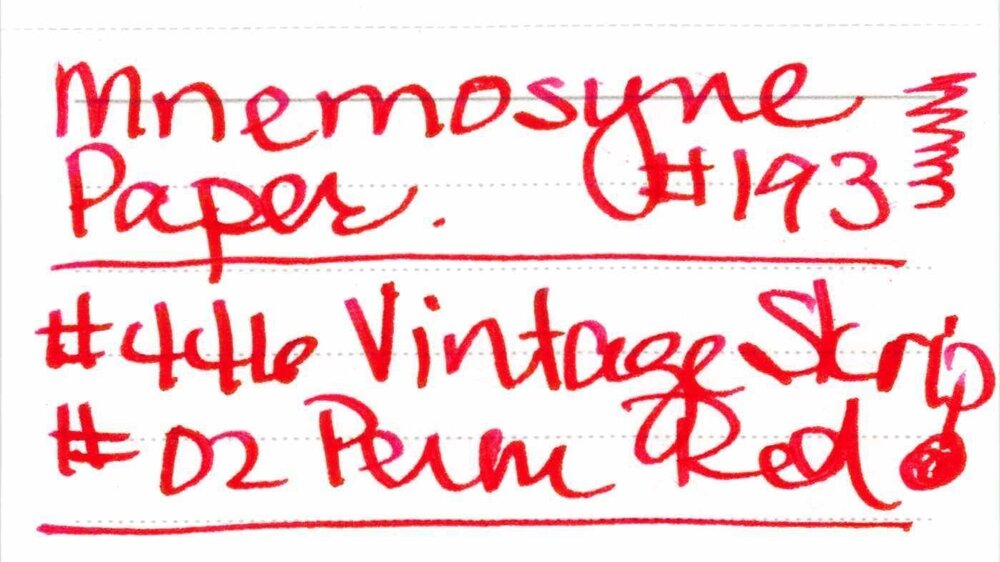 Mnemosyne
Paper. #193
#446 Vintage Skrip
#02 Perm Red